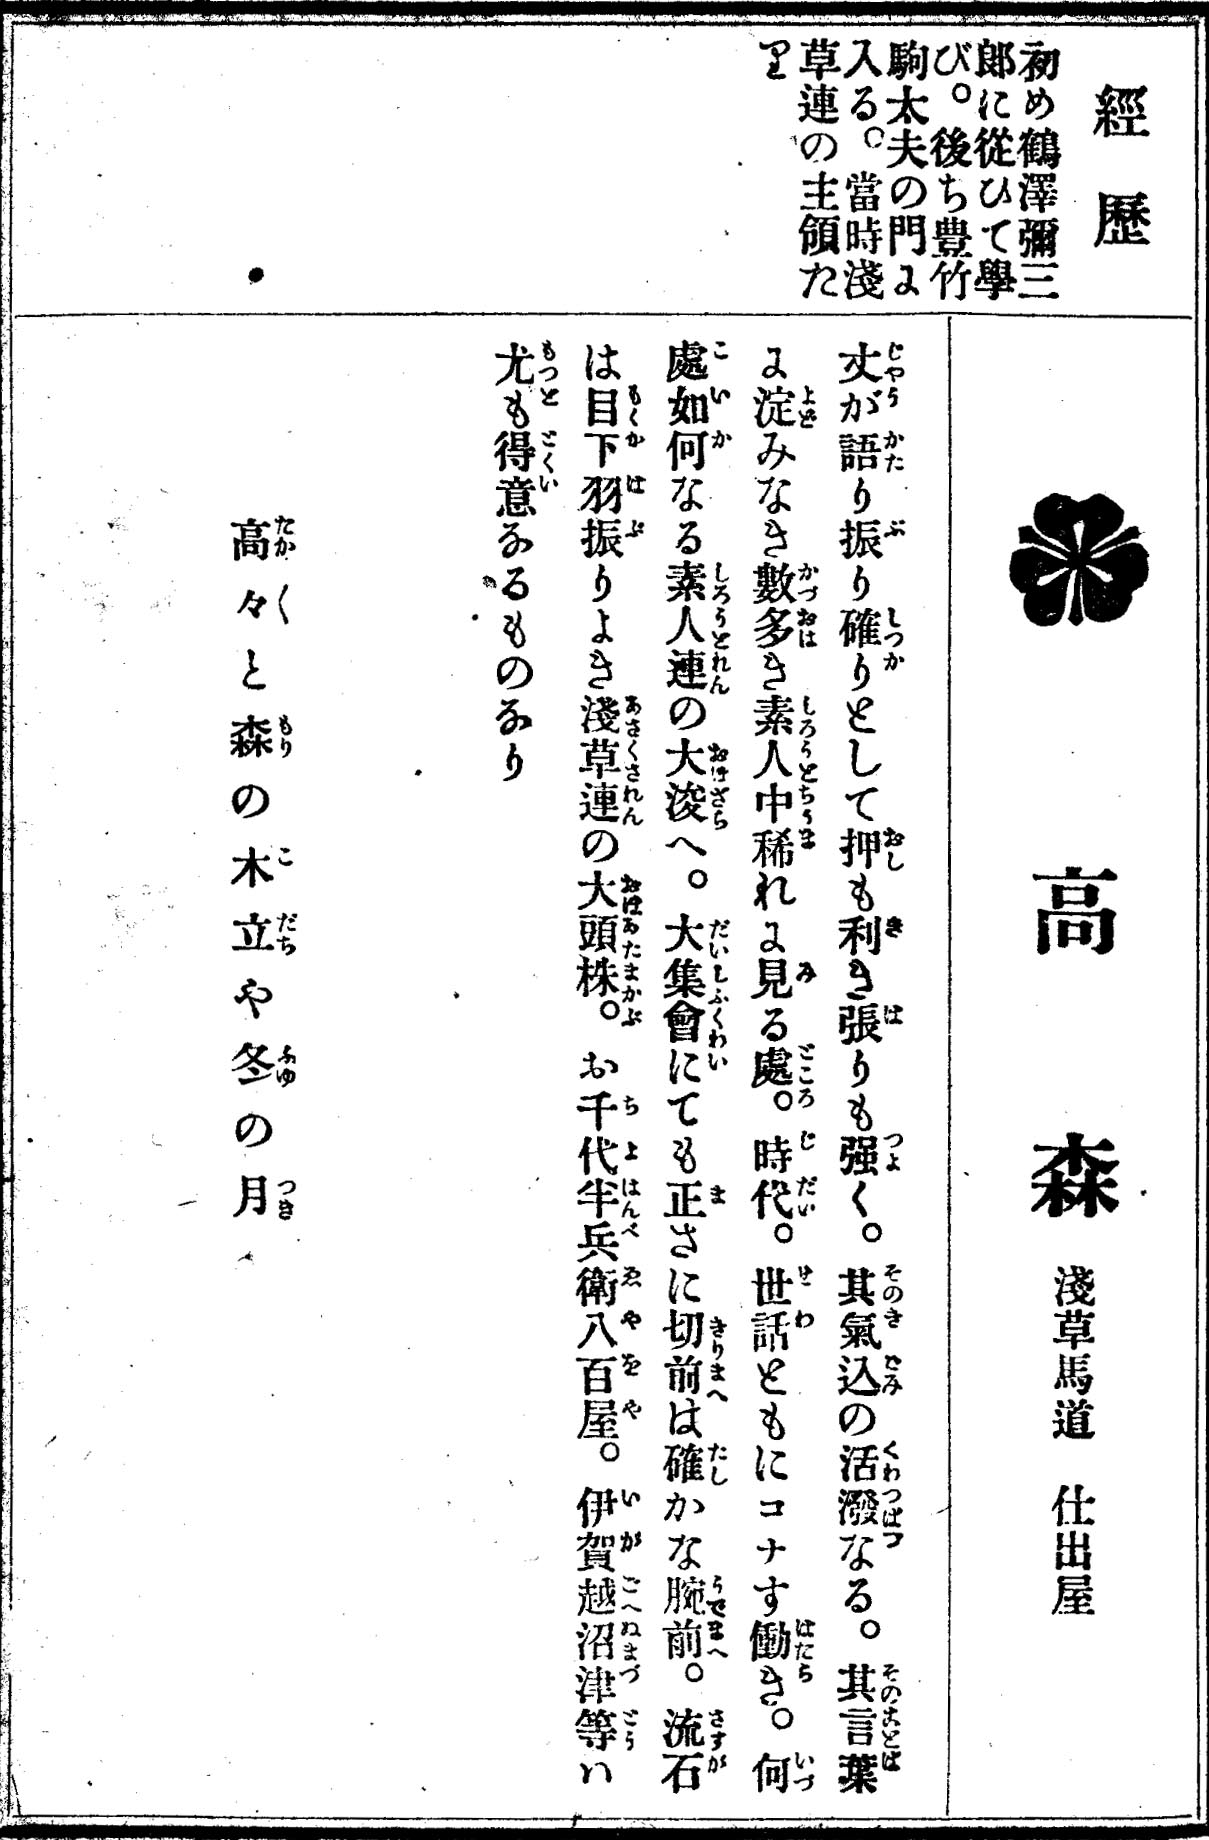 經歷
初め鶴澤彌三
郎に從ひて學
び。後ち豊竹
駒太夫の門に
入る。當時淺
草連の主領た
り
高森 淺草馬道 仕出屋
丈が語り振り確りとして押も利き張りも强く。其氣込の活潑なる。其言葉
に淀みなき數多き素人中稀れに見る處。時代。世話ともにコナす働き。何
處如何なる素人連の大浚へ。大集會にても正さに切前は確かな腕前。流石
は目下羽振りよき淺草連の大頭株。お千代半兵衛八百屋。伊賀越沼津等ハ
尤も得意なるものなり
高々と森の木立や冬の月